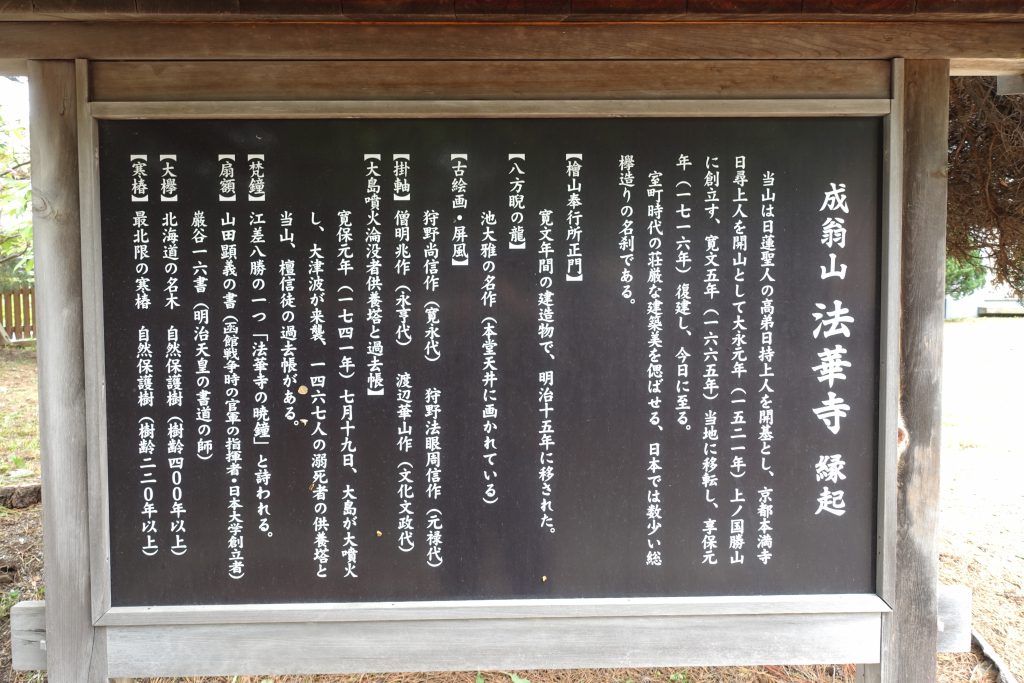 成翁山 法華寺 縁起
当山は日蓮聖人の高弟日持上人を開基とし、京都本満寺
日尋上人を開山として大永元年(一五二一年)上ノ国勝山
に創立す、寛文五年(一六六五年)当地に移転し、享保元
年(一七一六年)復建し、今日に至る。
室町時代の荘厳な建築美を偲ばせる、日本では数少い総
欅造りの名刹である。
【檜山奉行所正門】
寛文年間の建造物で、明治十五年に移された。
【八方睨の龍】
池大雅の名作(本堂天井に画かれている)
【古絵画・屏風】
狩野尚信作(寛永代) 狩野法眼周信作(元禄代)
【掛軸】僧明兆作(永亨代) 渡辺華山作(文化文政代)
【大島噴火淪没者供養塔と過去帳】
寛保元年(一七四一年)七月十九日、大島が大噴火
し、大津波が来襲、一四六七人の溺死者の供養塔と
当山、檀信徒の過去帳がある。
【梵鐘】江差八勝の一つ「法華寺の暁鐘」と詩われる。
【扇額】山田顕義の書(函館戦争時の官軍の指揮者・日本大学創立者)
巌谷一六書(明治天皇の書道の師)
【大欅】北海道の名木 自然保護樹(樹齢四〇〇年以上)
【寒椿】最北限の寒椿 自然保護樹(樹齢二二〇年以上)